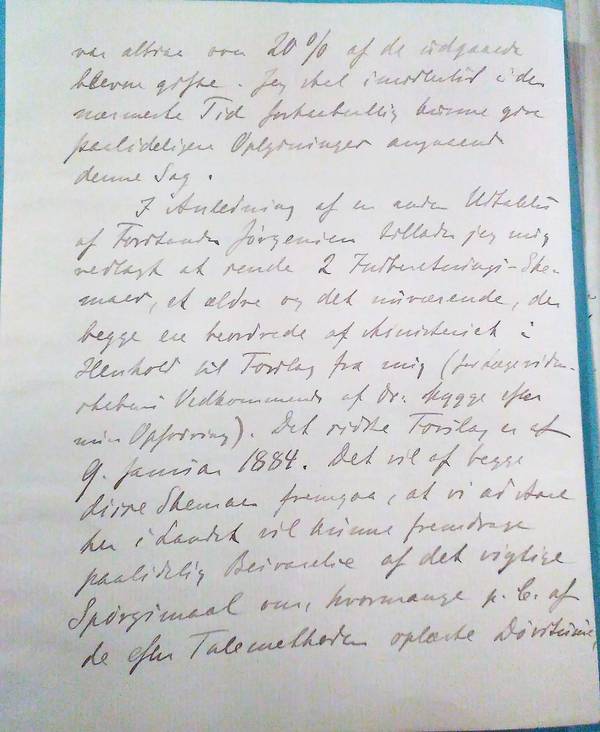 var altsaa over 20% af de udgaaede
blevne gifte. Jeg skal imidlertid i den
nærmeste Tid forhaabentlig kunne give
paalideligere Oplysninger angaaende
denne Sag.
I Anledning af en anden Udtalelse
af Forstander Jørgensen tillader jeg mig
vedlagt at sende 2 Indberetnings-Ske-
maer, et ældre og det nuværende, der
begge ere beordrede af Ministeriet i
Henhold til Forslag fra mig (for
Vedkommende af Dr. Mygge efter
min Opfordring). Det sidste Forslag er af
9. Januar 1884. Det vil af begge
disse Skemaer fremgaa, at vi
her i Landet vil kunne fremdrage
paalidelig Besvarelse af det vigtige
Spørgsmaal om, hvormange p. C. af
de efter Talemethoden oplærte Døvstumme,